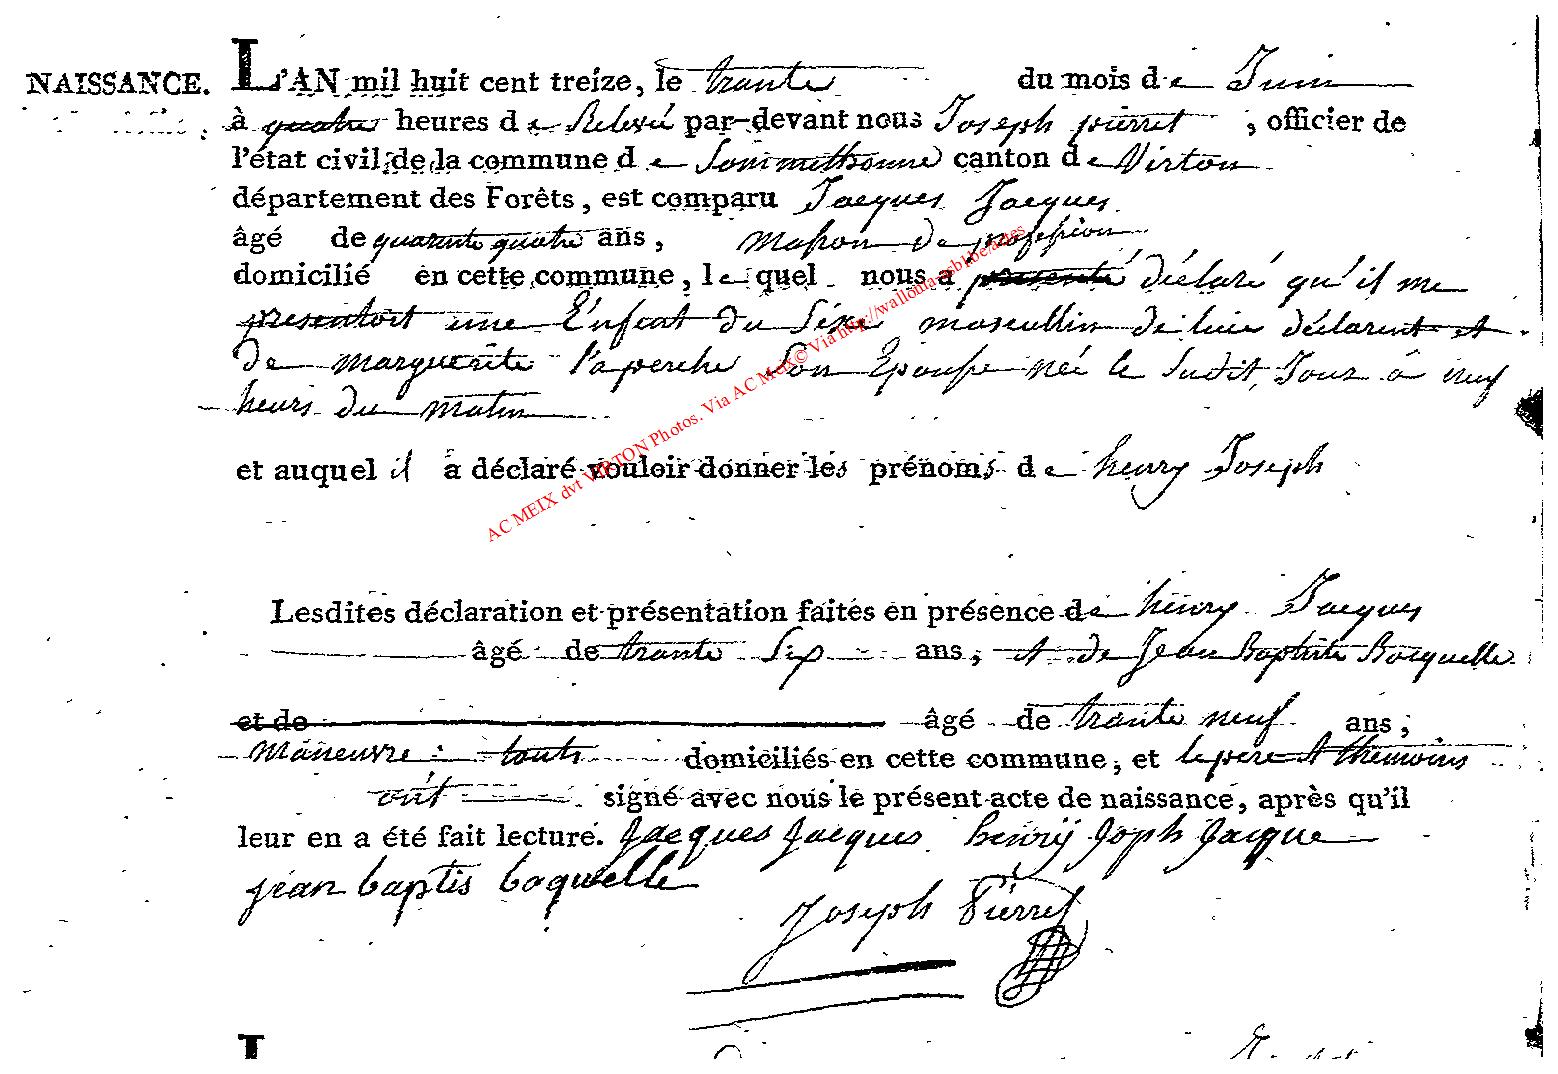 NAISSANCE. L'AN mil huit cent treize, le trante du mois de Juin
à quatre heures de Relevé par-devant nous Joseph pierret, officier de
l'état civil de la commune de Sommethonne canton de Virton
département des Forêts, est comparu Jacques Jacques
âgé de quarante quatre ans, masson de profession
domicilié en cette commune, lequel nous a presenté déclaré qu'il me
presentoit une Enfant du Sexe mascullin de luie déclarent et
de marguerite Laperche Son Epousse née le Sudit Jour à neuf
heurs du matin
et auquel il a déclaré vouloir donner les prénoms de henry Joseph
Lesdites déclaration et présentation faites en présence de henry Jacques
âgé de trante Six ans, et de Jean Baptiste Bocquelle
et de âgé de trante neuf ans,
maneuvre touts domiciliés en cette commune, et le pere et themoins
ont signé avec nous le présent acte de naissance, après qu'il
leur en a été fait lecture. Jacques Jacques henry Joph Jacque
jean baptis boquelle
Joseph Pierret
AC MEIX dvt VIRTON Photos. Via AC Meix© Via http://wallonia-asbl.be/actes